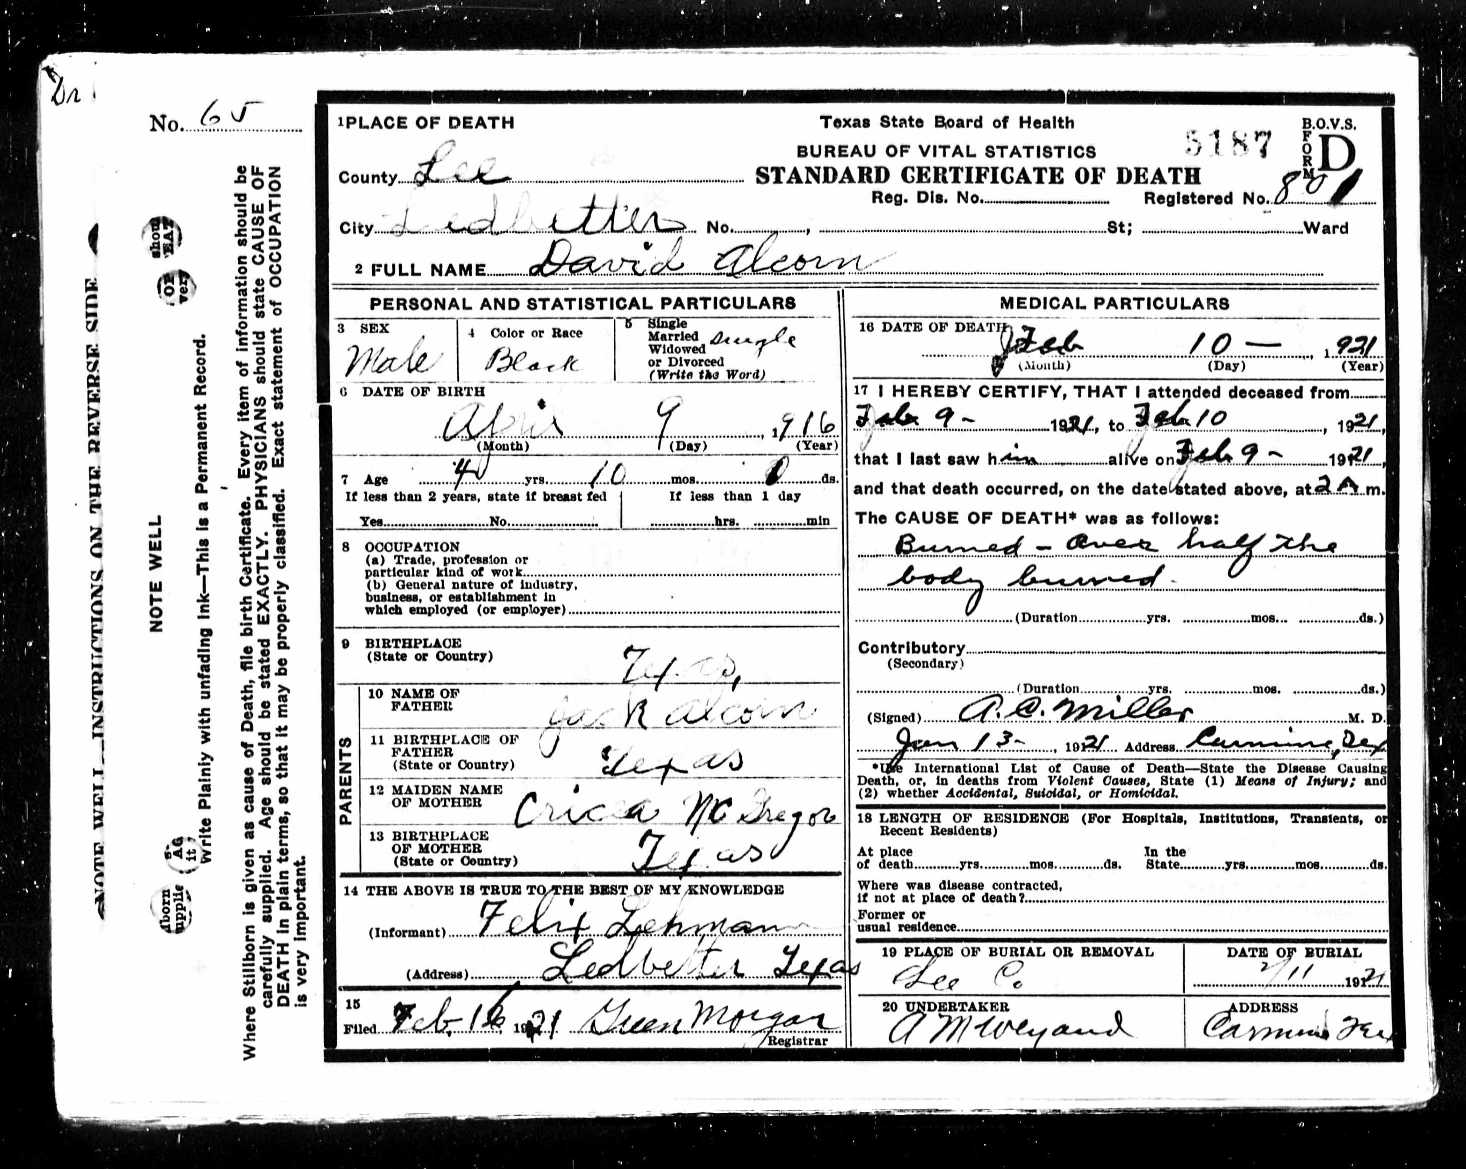 Dr
No. 65
NOTE WELL—INSTRUCTIONS ON THE REVERSE SIDE
NOTE WELL
Write Plainly with unfading Ink—This is a Permanent Record.
Where Stillborn is given as cause of Death, file birth Certificate. Every item of information should be
carefully supplied. Age should be stated EXACTLY. PHYSICIANS should state CAUSE OF
DEATH in plain terms, so that it may be properly classified. Exact statement of OCCUPATION
is very important.
1 PLACE OF DEATH
Texas State Board of Health
BUREAU OF VITAL STATISTICS
STANDARD CERTIFICATE OF DEATH
5187
B.O.V.S.
FORM D
County Lee
Reg. Dis. No.
Registered No. 801
City Ledbetter No. , St; Ward
2 FULL NAME David Alcorn
PERSONAL AND STATISTICAL PARTICULARS
3 SEX
Male
4 Color or Race
Black
5 Single
Married
Widowed
or Divorced
(Write the Word)
single
6 DATE OF BIRTH
9, 1916
(Month) (Day) (Year)
7 Age 4 yrs. 10 mos. ds.
If less than 2 years, state if breast fed
Yes No
If less than 1 day
hrs. min
8 OCCUPATION
(a) Trade, profession or
particular kind of work
(b) General nature of industry,
business, or establishment in
which employed (or employer)
9 BIRTHPLACE
(State or Country)
Texas,
PARENTS
10 NAME OF
FATHER
Jack Alcorn
11 BIRTHPLACE OF
FATHER
(State or Country)
Texas
12 MAIDEN NAME
OF MOTHER
McGregor
13 BIRTHPLACE
OF MOTHER
(State or Country)
Texas
14 THE ABOVE IS TRUE TO THE BEST OF MY KNOWLEDGE
(Informant) Felix Lehmann
(Address) Ledbetter Texas
15
Filed Feb. 16, 1921 Green Morgan
Registrar
MEDICAL PARTICULARS
16 DATE OF DEATH
Feb 10 —, 1921
(Month) (Day) (Year)
17 I HEREBY CERTIFY, THAT I attended deceased from
Feb 9 - 1921, to Feb 10, 1921,
that I last saw him alive on Feb 9 - 1921,
and that death occurred, on the date stated above, at 2 A m.
The CAUSE OF DEATH* was as follows:
Burned - Over half the
body burned.
(Duration yrs. mos. ds.)
Contributory
(Secondary)
(Duration yrs. mos. ds.)
(Signed) A. C. Miller M. D.
Jan 13 - , 1921 Address Carmine, Tex
*Use International List of Cause of Death—State the Disease Causing
Death, or, in deaths from Violent Causes, State (1) Means of Injury; and
(2) whether Accidental, Suicidal, or Homicidal.
18 LENGTH OF RESIDENCE (For Hospitals, Institutions, Transients, or
Recent Residents)
At place
of death yrs. mos. ds.
In the
State yrs. mos. ds.
Where was disease contracted,
if not at place of death?
Former or
usual residence
19 PLACE OF BURIAL OR REMOVAL
Lee Co
DATE OF BURIAL
2/11 1921
20 UNDERTAKER
A M Weyand
ADDRESS
Carmine Tex